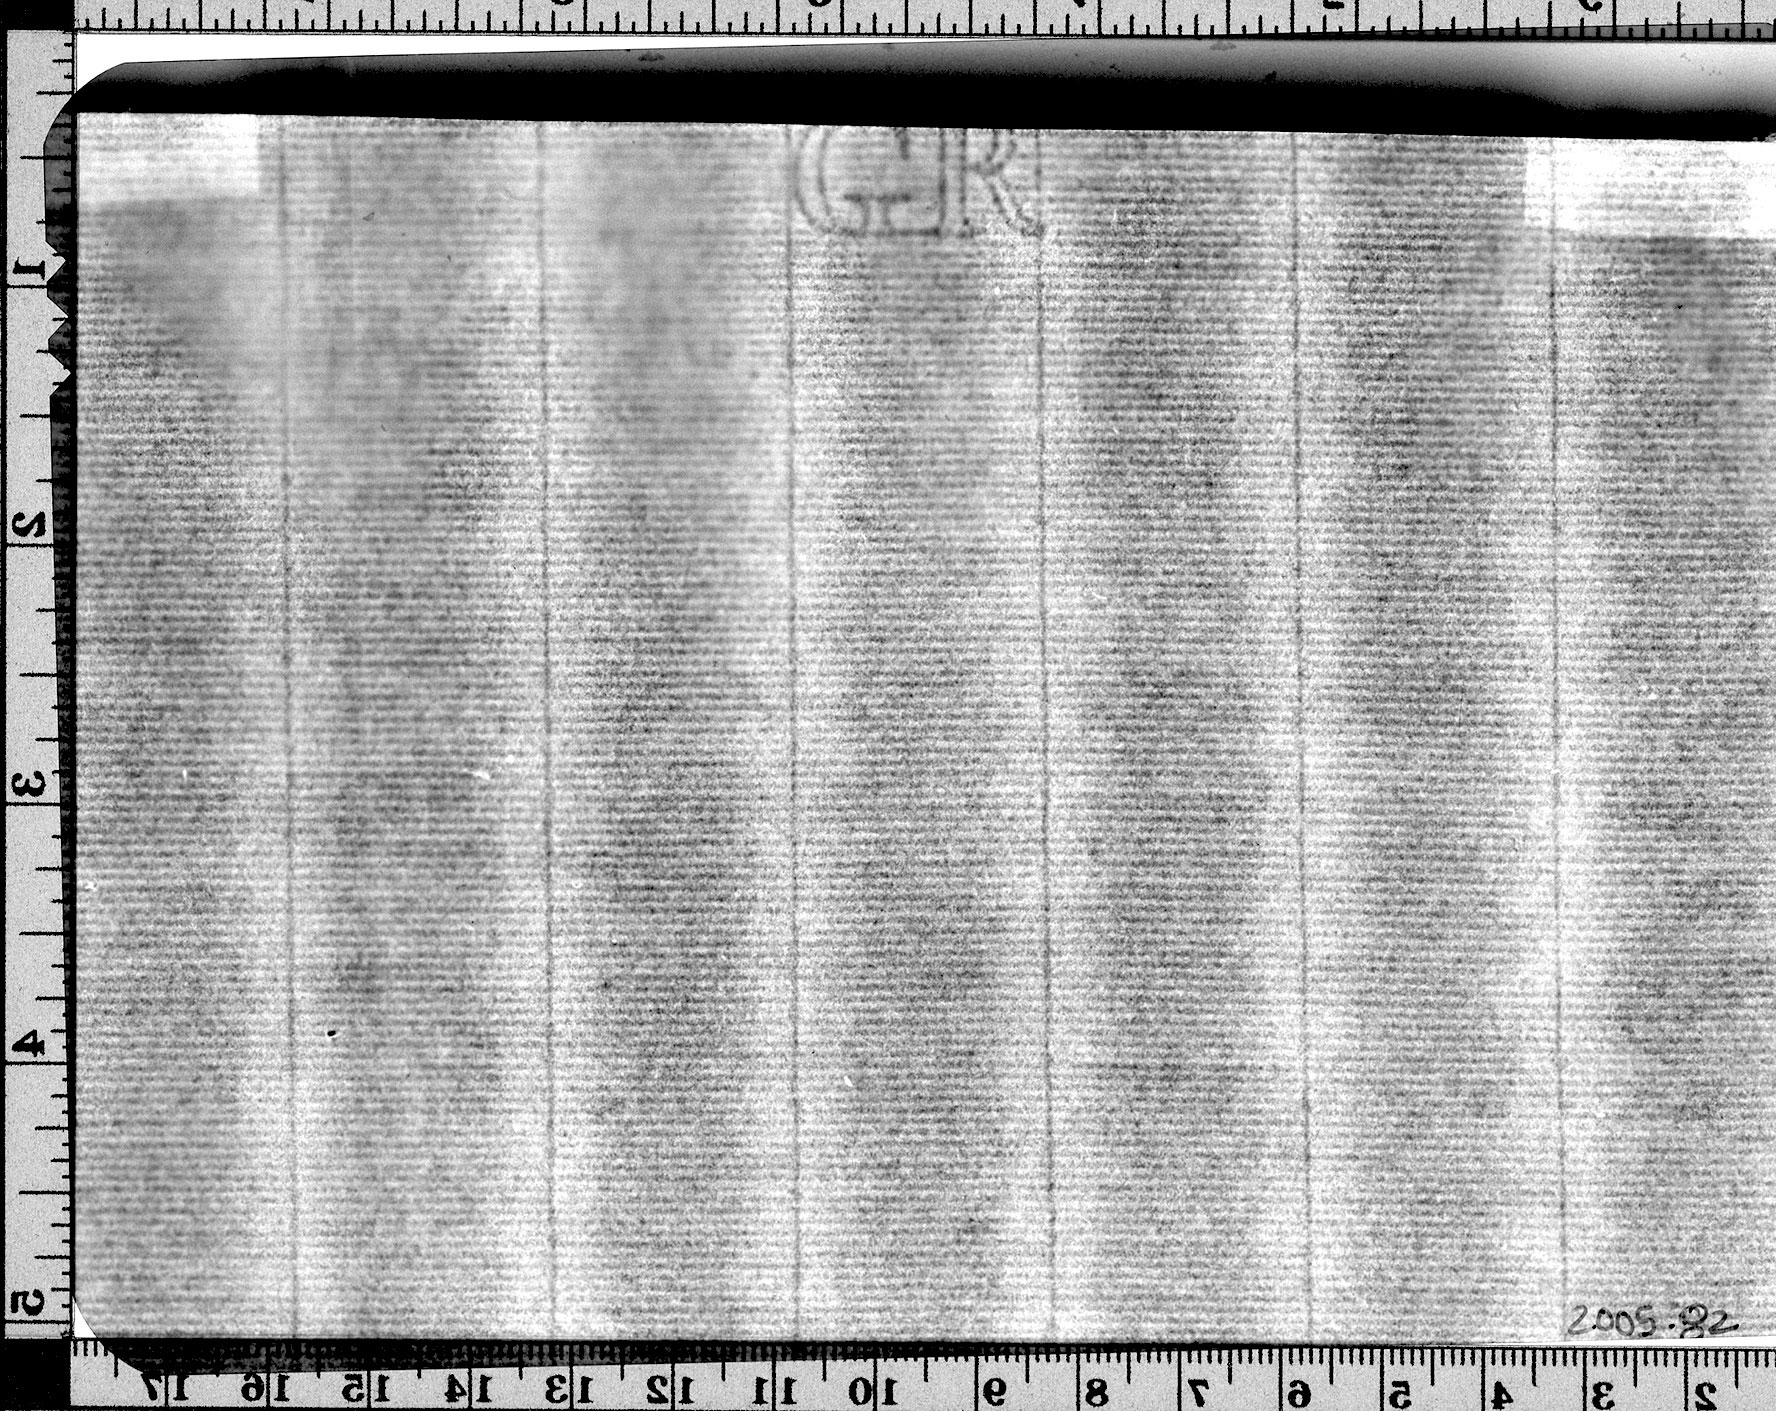 GR
1
2
3
4
5
2005.82
17 16 15 14 13 12 11 10 9 8 7 6 5 4 3 2